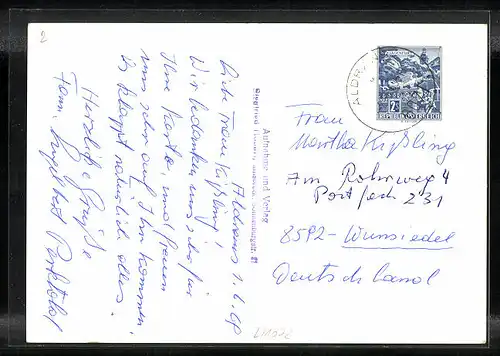 Aldrans 1. 6. 69
Liebe Frau Kißling!
Wir bedanken uns sehr für
Ihre Karte, und freuen
uns sehr auf Ihr Kommen.
Es klappt natürlich alles.
Herzliche Grüße
Fam. Engelbert
Aufnahme und Verlag
Siegfried
ALDR
2S
REPUBLIK ÖSTERREICH
Frau
Martha Kißling
Am Rohrweg 4
Postfach 231
8592 - Wunsiedel
Deutschland
2